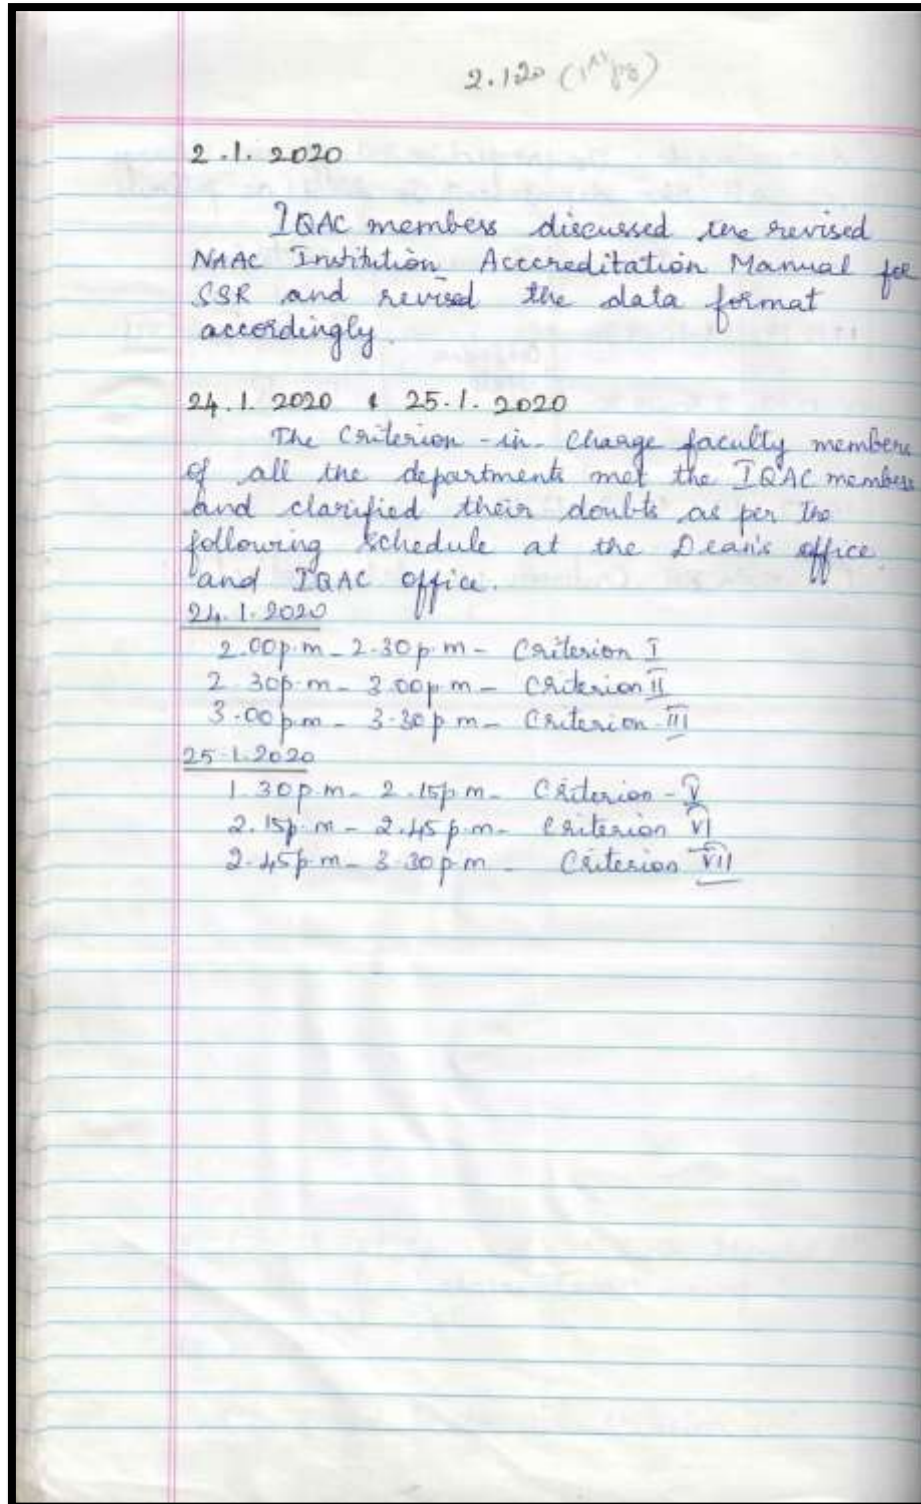 2.1.20 (1st pg)
2.1.2020
IQAC members discussed the revised
NAAC Institution Accreditation Manual for
SSR and revised the data format
accordingly.
24.1.2020 & 25.1.2020
The Criterion-in-Charge faculty members
of all the departments met the IQAC members
and clarified their doubts as per the
following schedule at the Dean's office
and IQAC office.
24.1.2020
2.00p.m - 2.30p.m - Criterion I
2.30p.m - 3.00p.m - Criterion II
3.00p.m - 3.30p.m - Criterion III
25.1.2020
1.30p.m - 2.15p.m - Criterion - V
2.15p.m - 2.45p.m - Criterion VI
2.45p.m - 3.30p.m - Criterion VII